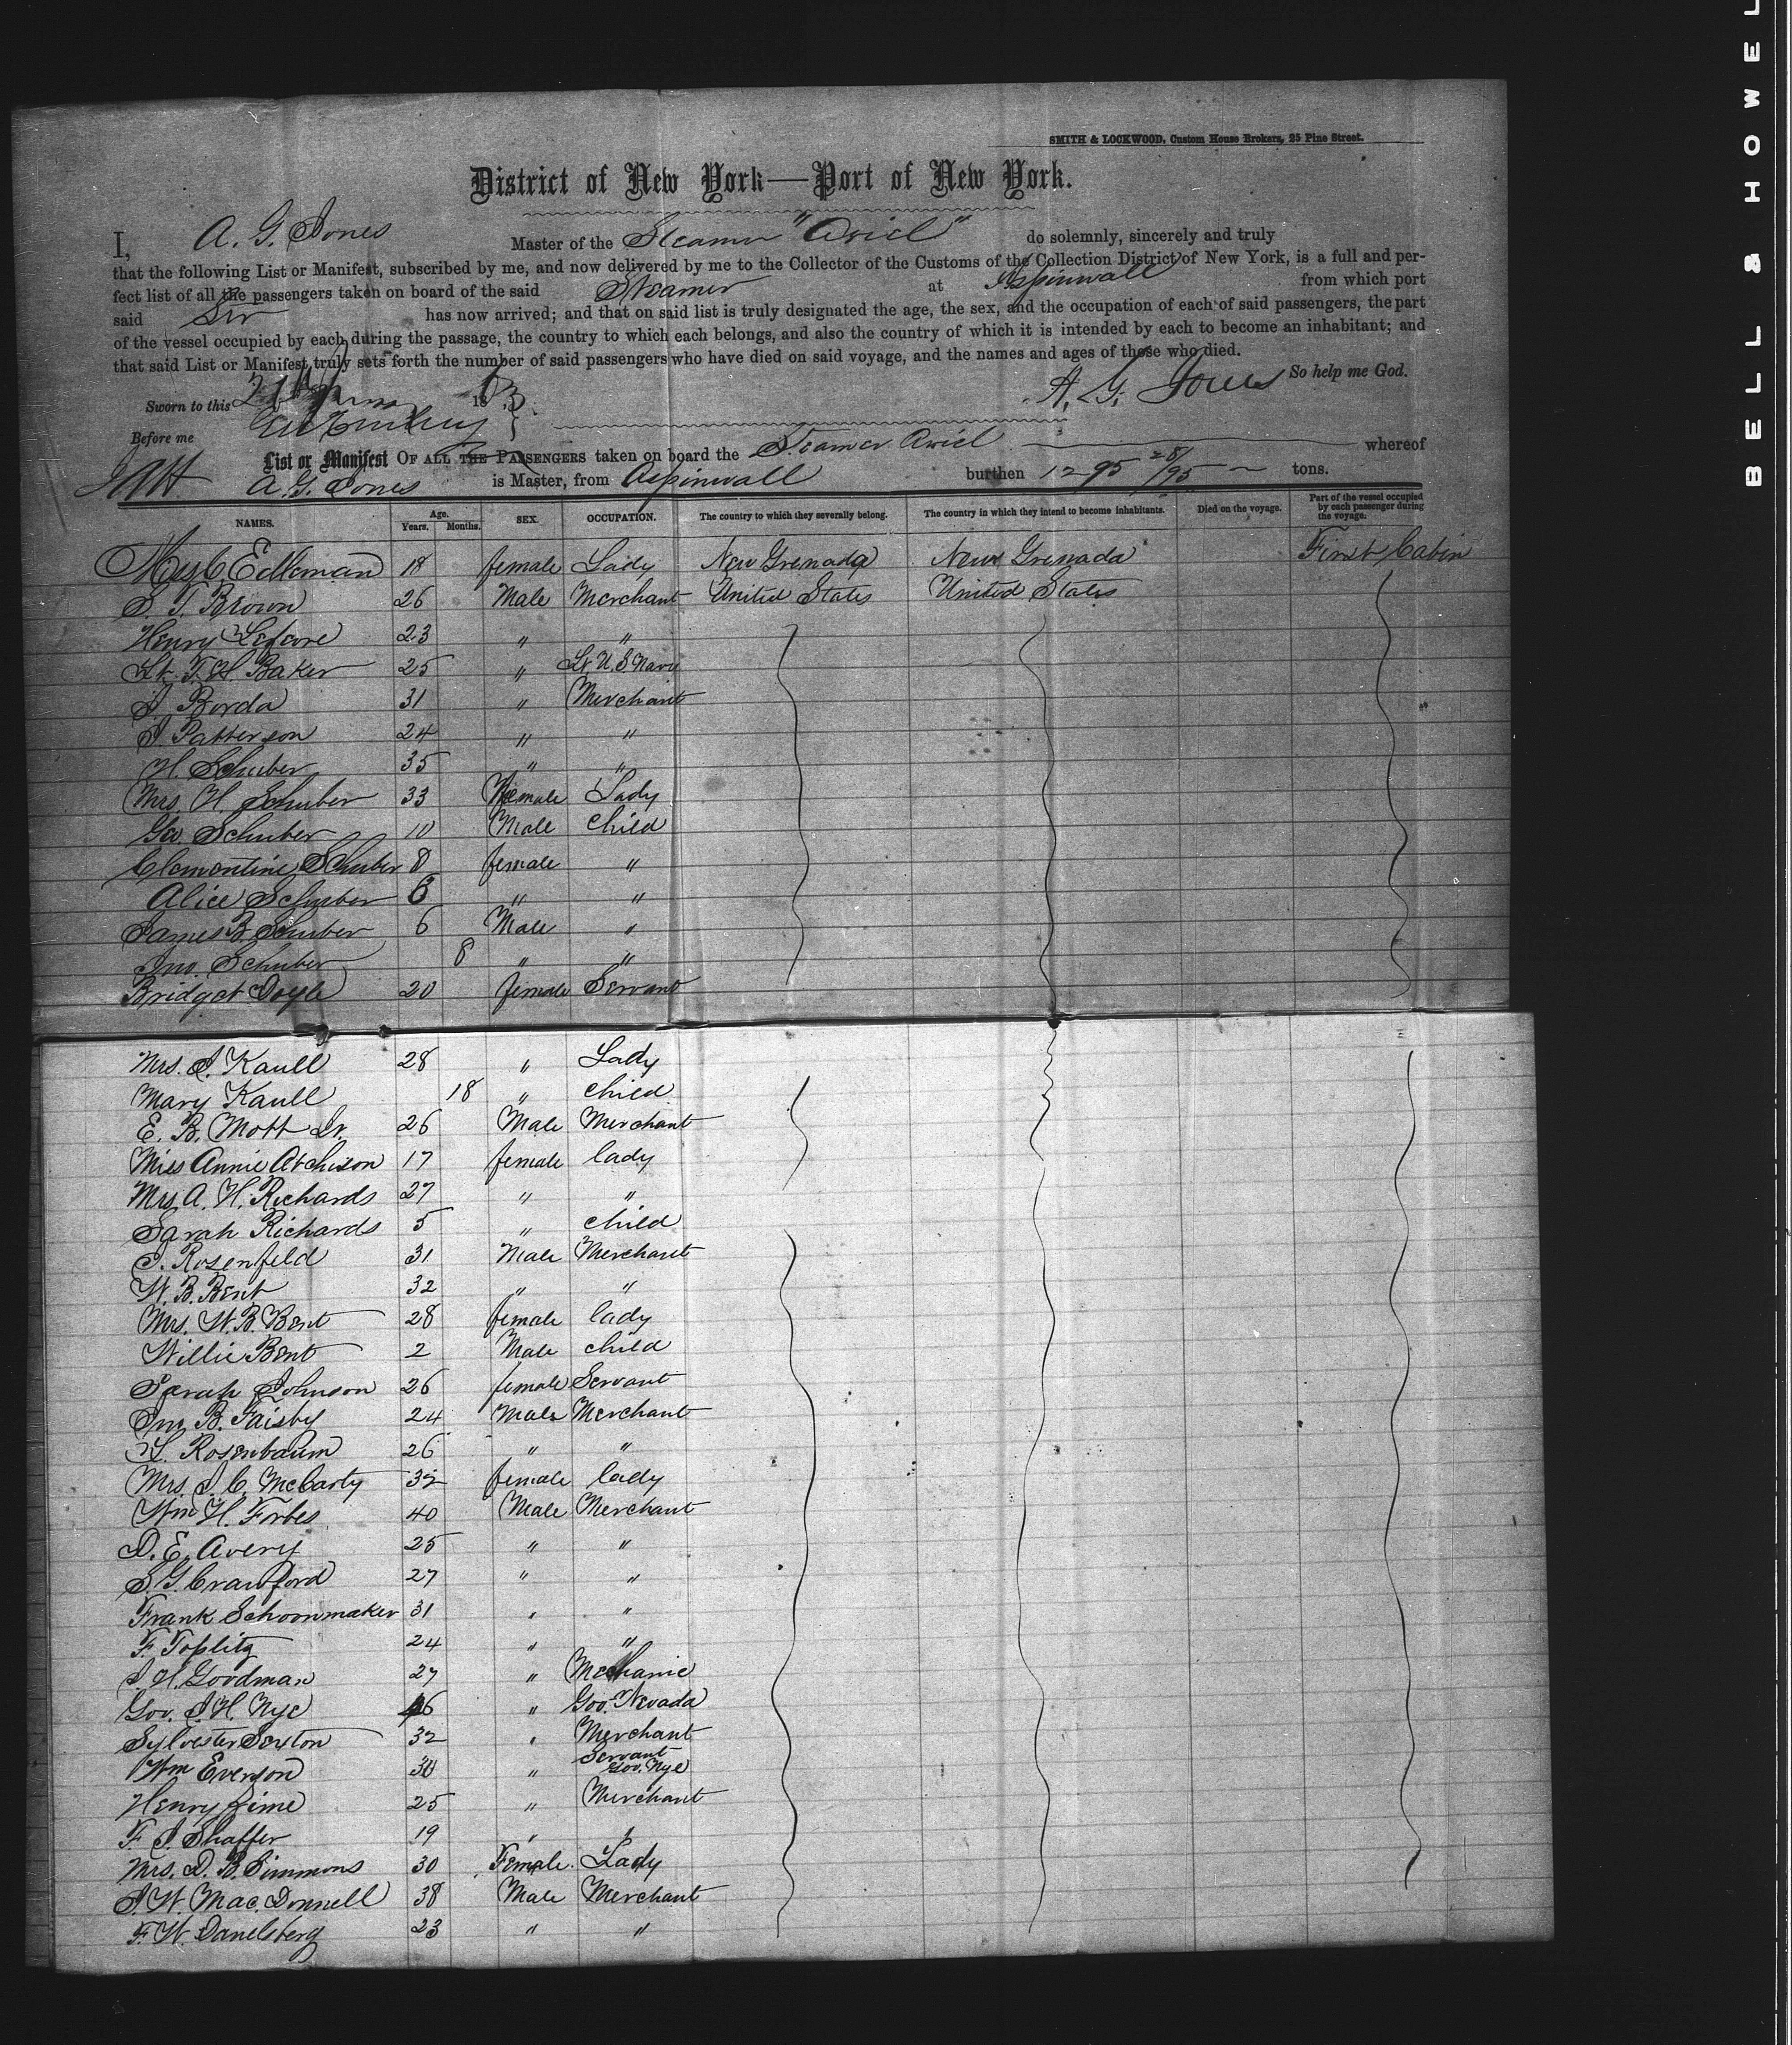 SMITH & LOCKWOOD, Custom House Brokers, 25 Pine Street.
District of New York—Port of New York.
I, A. G. Jones Master of the Steamer "Ariel" do solemnly, sincerely and truly
that the following List or Manifest, subscribed by me, and now delivered by me to the Collector of the Customs of the Collection District of New York, is a full and per-
fect list of all the passengers taken on board of the said Steamer at Aspinwall from which port
said Str has now arrived; and that on said list is truly designated the age, the sex, and the occupation of each of said passengers, the part
of the vessel occupied by each during the passage, the country to which each belongs, and also the country of which it is intended by each to become an inhabitant; and
that said List or Manifest truly sets forth the number of said passengers who have died on said voyage, and the names and ages of those who died.
A. G. Jones So help me God.
Sworn to this 1863
Before me
List or Manifest OF ALL THE PASSENGERS taken on board the Steamer Ariel whereof
A. G. Jones is Master, from Aspinwall burthen 1295 28/95 tons.
NAMES. Age. Years. Months. SEX. OCCUPATION. The country to which they severally belong. The country in which they intend to become inhabitants. Died on the voyage. Part of the vessel occupied by each passenger during the voyage.
18 female Lady New Grenada New Grenada First Cabin
S. T. Brown 26 Male Merchant United States United States
Henry 23 " "
Lt. T. H. Baker 25 " Lt U. S Navy
J. Borda 31 " Merchant
J. Patterson 24 " "
H. Schuber 35 " "
Mrs. H. Schuber 33 Female Lady
Geo. Schuber 10 Male child
Clementine Schuber 8 female "
Alice Schuber 6 " "
James B. Schuber 6 Male "
Jno. Schuber 8 " "
Bridget Doyle 20 female Servant
Mrs. J. Kaull 28 " Lady
Mary Kaull 18 " child
E. B. Mott Jr. 26 Male Merchant
Miss Annie Atchison 17 female lady
Mrs. A. H. Richards 27 " "
Sarah Richards 5 " child
J. Rosenfeld 31 Male Merchant
W. B. Bent 32 " "
Mrs. W. B. Bent 28 female lady
Willie Bent 2 Male child
Sarah Johnson 26 female Servant
Jno. B. Faisby 24 Male Merchant
L. Rosenbaum 26 " "
Mrs. J. C. McCarty 32 female lady
Wm H. Forbes 40 Male Merchant
D. E. Avery 25 " "
S. G. Crawford 27 " "
Frank Schoonmaker 31 " "
F. Toplitz 24 " "
J. H. Goodman 27 " Mechanic
Gov. J. H. Nye 46 " Gov. Nevada
Sylvester Sexton 32 " Merchant
Wm Everson 30 " Servant Gov. Nye
Henry Lime 25 " Merchant
F. J. Shaffer 19 " "
Mrs. D. B. Simmons 30 Female Lady
J. W. Mac. Donnell 38 Male Merchant
F. W. Danelsberg 23 " "
BELL & HOWEL